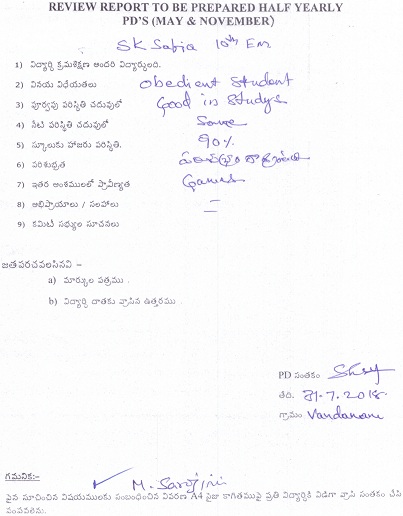 REVIEW REPORT TO BE PREPARED HALF YEARLY
PD'S (MAY & NOVEMBER)
SK Safia 10th Em
1) విద్యార్థి క్రమశిక్షణ అందరి విద్యార్థులది.
2) వినయ విధేయతలు Obedient Student
3) పూర్వపు పరిస్థితి చదువులో Good in Studys
4) నేటి పరిస్థితి చదువులో Same
5) స్కూలుకు హాజరు పరిస్థితి. 90%
6) పరిశుభ్రత
7) ఇతర అంశములలో ప్రావీణ్యత Games
8) అభిప్రాయాలు / సలహాలు
9) కమిటీ సభ్యుల సూచనలు
జతపరచవలసినవి –
a) మార్కుల పత్రము .
b) విద్యార్థి దాతకు వ్రాసిన ఉత్తరము .
PD సంతకం
తేది. 31-7-2018
గ్రామం Vandanam
గమనిక:–
M. Sarojini
పైన సూచించిన విషయములకు సంబంధించిన వివరణ A4 సైజు కాగితముపై ప్రతి విద్యార్థికి విడిగా వ్రాసి సంతకం చేసి
పంపవలెను.